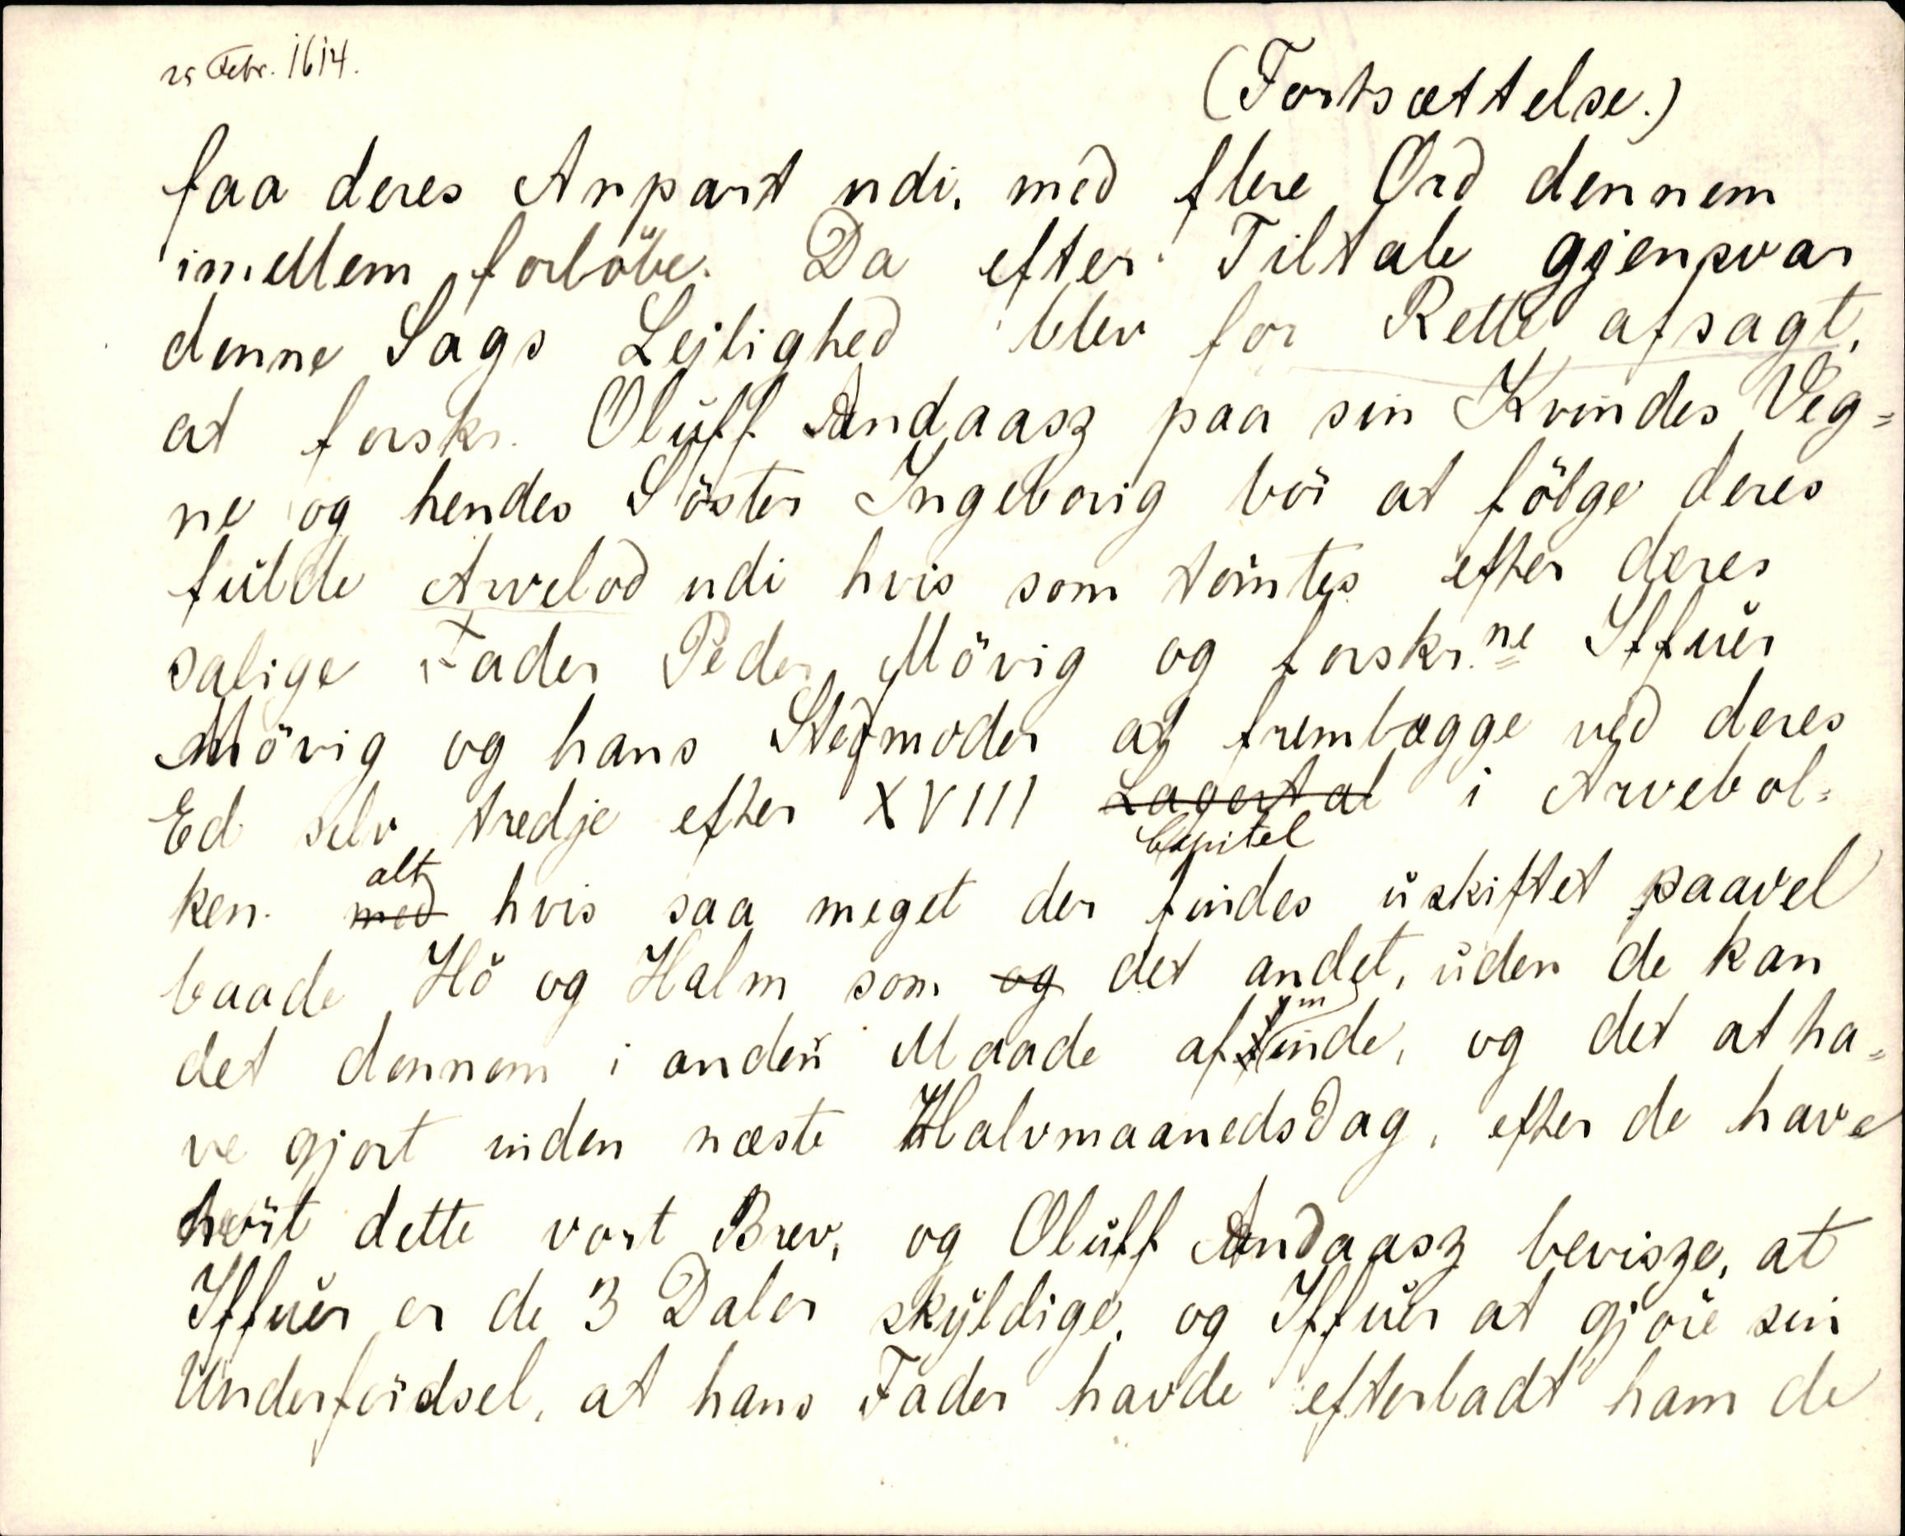 25 Febr. 1614.
(Fortsættelse.)
faa deres Anpart udi, med flere Ord dennem
imellem forlöbe. Da efter Tiltale gjensvar
denne Sags Lejlighed blev for Rette afsagt,
at forskr. Oluff Andaasz paa sin Kvindes Veg=
ne og hendes Söster Ingeborig bör at fölge deres
fulde Arvelod udi hvis som töintes efter deres
salige Fader Peder Mövig og forskr.ne Iffuer
Mövig og hans Stedmoder at fremlægge ved deres
Ed selv tredje efter XVIII Lagertal i Arvebol=
Capitel
alt
ken. med hvis saa meget der findes uskiftet paavel
baade Hö og Halm som og det andet, uden de kan
det dennem i anden Maade affinde, og det at ha=
ve gjort inden næste Halvmaanedsdag, efter de have
hört dette vort Brev, og Oluff Andaasz bevisze, at
Iffuer er de 3 Daler skyldige, og Iffuer at gjöre sin
Underfördsel, at hans Fader havde efterladt ham de